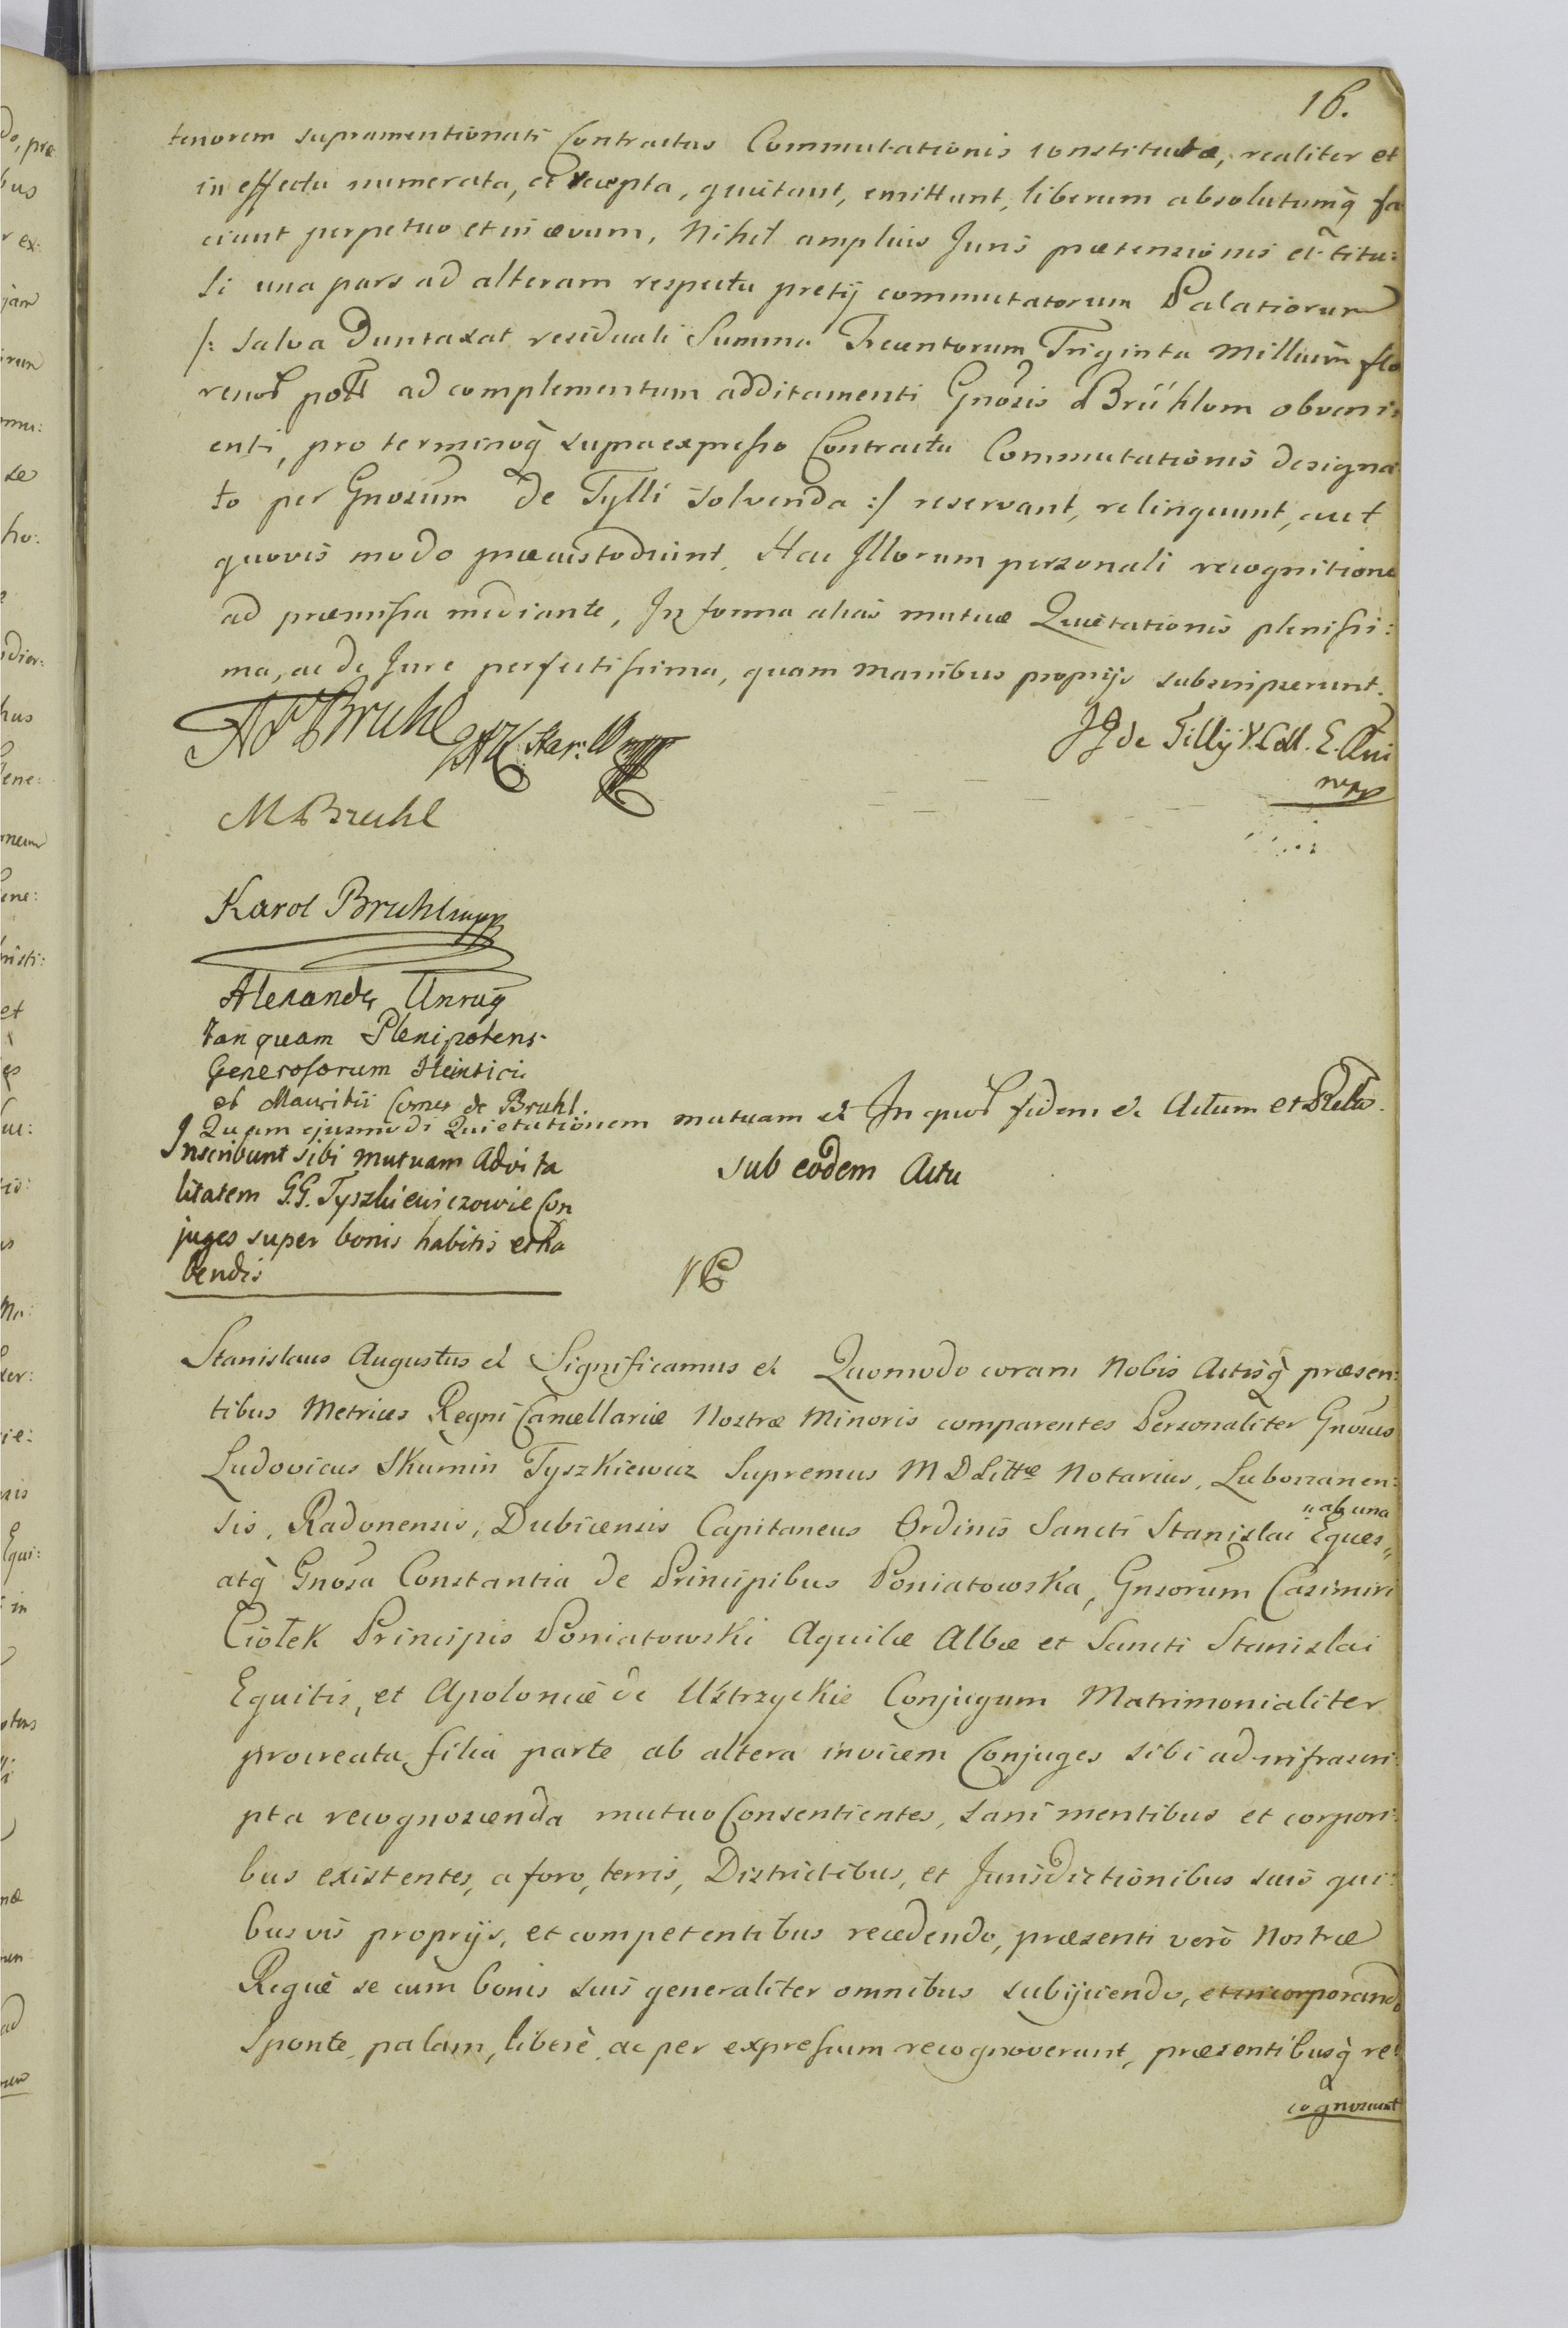 16.
tenorem supramentionati Contractus Commutationis constitutæ, realiter et
in effectu numerata, et recepta, quietant, emittunt, liberum absolutumq̀ fa
ciunt perpetuo et in ævum, Nihil amplius Juris prætensionis et titu:
li una pars ad alteram respectu pretij commutatorum Palatiorum
/: salva Duntaxat residuali Summa Trecentorum Triginta Millium flo
renor polł ad complementum additamenti Gnosis d Brühlom obveni:
enti, pro terminoq̀ supraexpresso Contractu Commutationis designa
to per Gnosum de Tylli solvenda :/ reservant, relinquunt, aut
quovis modo præcustodiunt. Hac Illorum personali recognitione
ad præmissa mediante, In forma alias mutuæ Quietationis plenissi:
ma, ac de Jure perfectissima, quam manibus proprijs subscripserunt.
AF Bruhl Star: W mpp
JG de Tilly
mpp
M Bruhl
Karol Bruhl mpp
Alexander Unrug
tanquam Plenipotens
Generosorum Heinrici
et Mauritii Comes de Bruhl.
Quam ejusmodi Quietationem mutuam et In quor fidem et Actum et Relo.
Inscribunt sibi mutuam Advita
litatem G.G. Tyszkiewiczowie Con
juges super bonis habitis et ha
bendis
sub eodem Actu
Stanislaus Augustus et Significamus et Quomodo coram Nobis Actisq̀ præsen:
tibus Metrices Regni Cancellariæ Nostræ Minoris comparentes Personaliter Gnosus
Ludovicus Skumin Tyszkiewicz Supremus M D Litthæ Notarius, Luboszanen:
sis, Radonensis, Dubicensis Capitaneus Ordinis Sancti Stanislai Eques „ab una„
atq̀ Gnosa Constantia de Principibus Poniatowska, Gnsorum Casimiri
Ciołek Principis Poniatowski Aquilæ Albæ et Sancti Stanislai
Equitis, et Apoloniæ de Ustrzyckie Conjugum Matrimonialiter
procreata filia parte ab altera invicem Conjuges sibi ad infrascri:
pta recognoscenda mutuo Consentientes, sani mentibus et corpori:
bus existentes, a foro, terris, Districtibus, et Jurisdictionibus suis qui:
busvis proprijs, et competentibus recedendo, præsenti verò Nostræ
Regiæ se cum bonis suis generaliter omnibus subijciendo, et incorporando
Sponte, palam, liberè, ac per expressum recognoverunt, præsentibusq̀ re:
cognoscunt